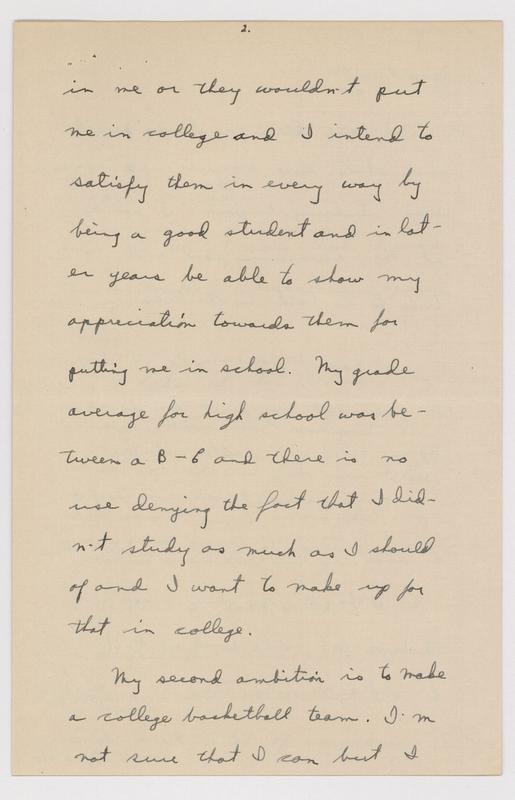 2.
in me or they wouldn't put
me in college and I intend to
satisfy them in every way by
being a good student and in lat-
er years be able to show my
appreciation towards them for
putting me in school. My grade
average for high school was be-
tween a B-C and there is no
use denying the fact that I did-
n't study as much as I should
of and I want to make up for
that in college.
My second ambition is to make
a college basketball team. I'm
not sure that I can but I